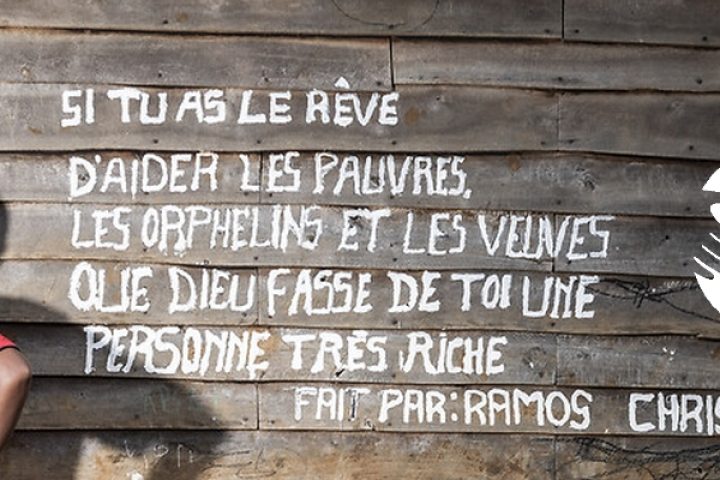 SI TU AS LE RÊVE
D'AIDER LES PAUVRES,
LES ORPHELINS ET LES VEUVES
QUE DIEU FASSE DE TOI UNE
PERSONNE TRÈS RICHE
FAIT PAR: RAMOS CHRIS